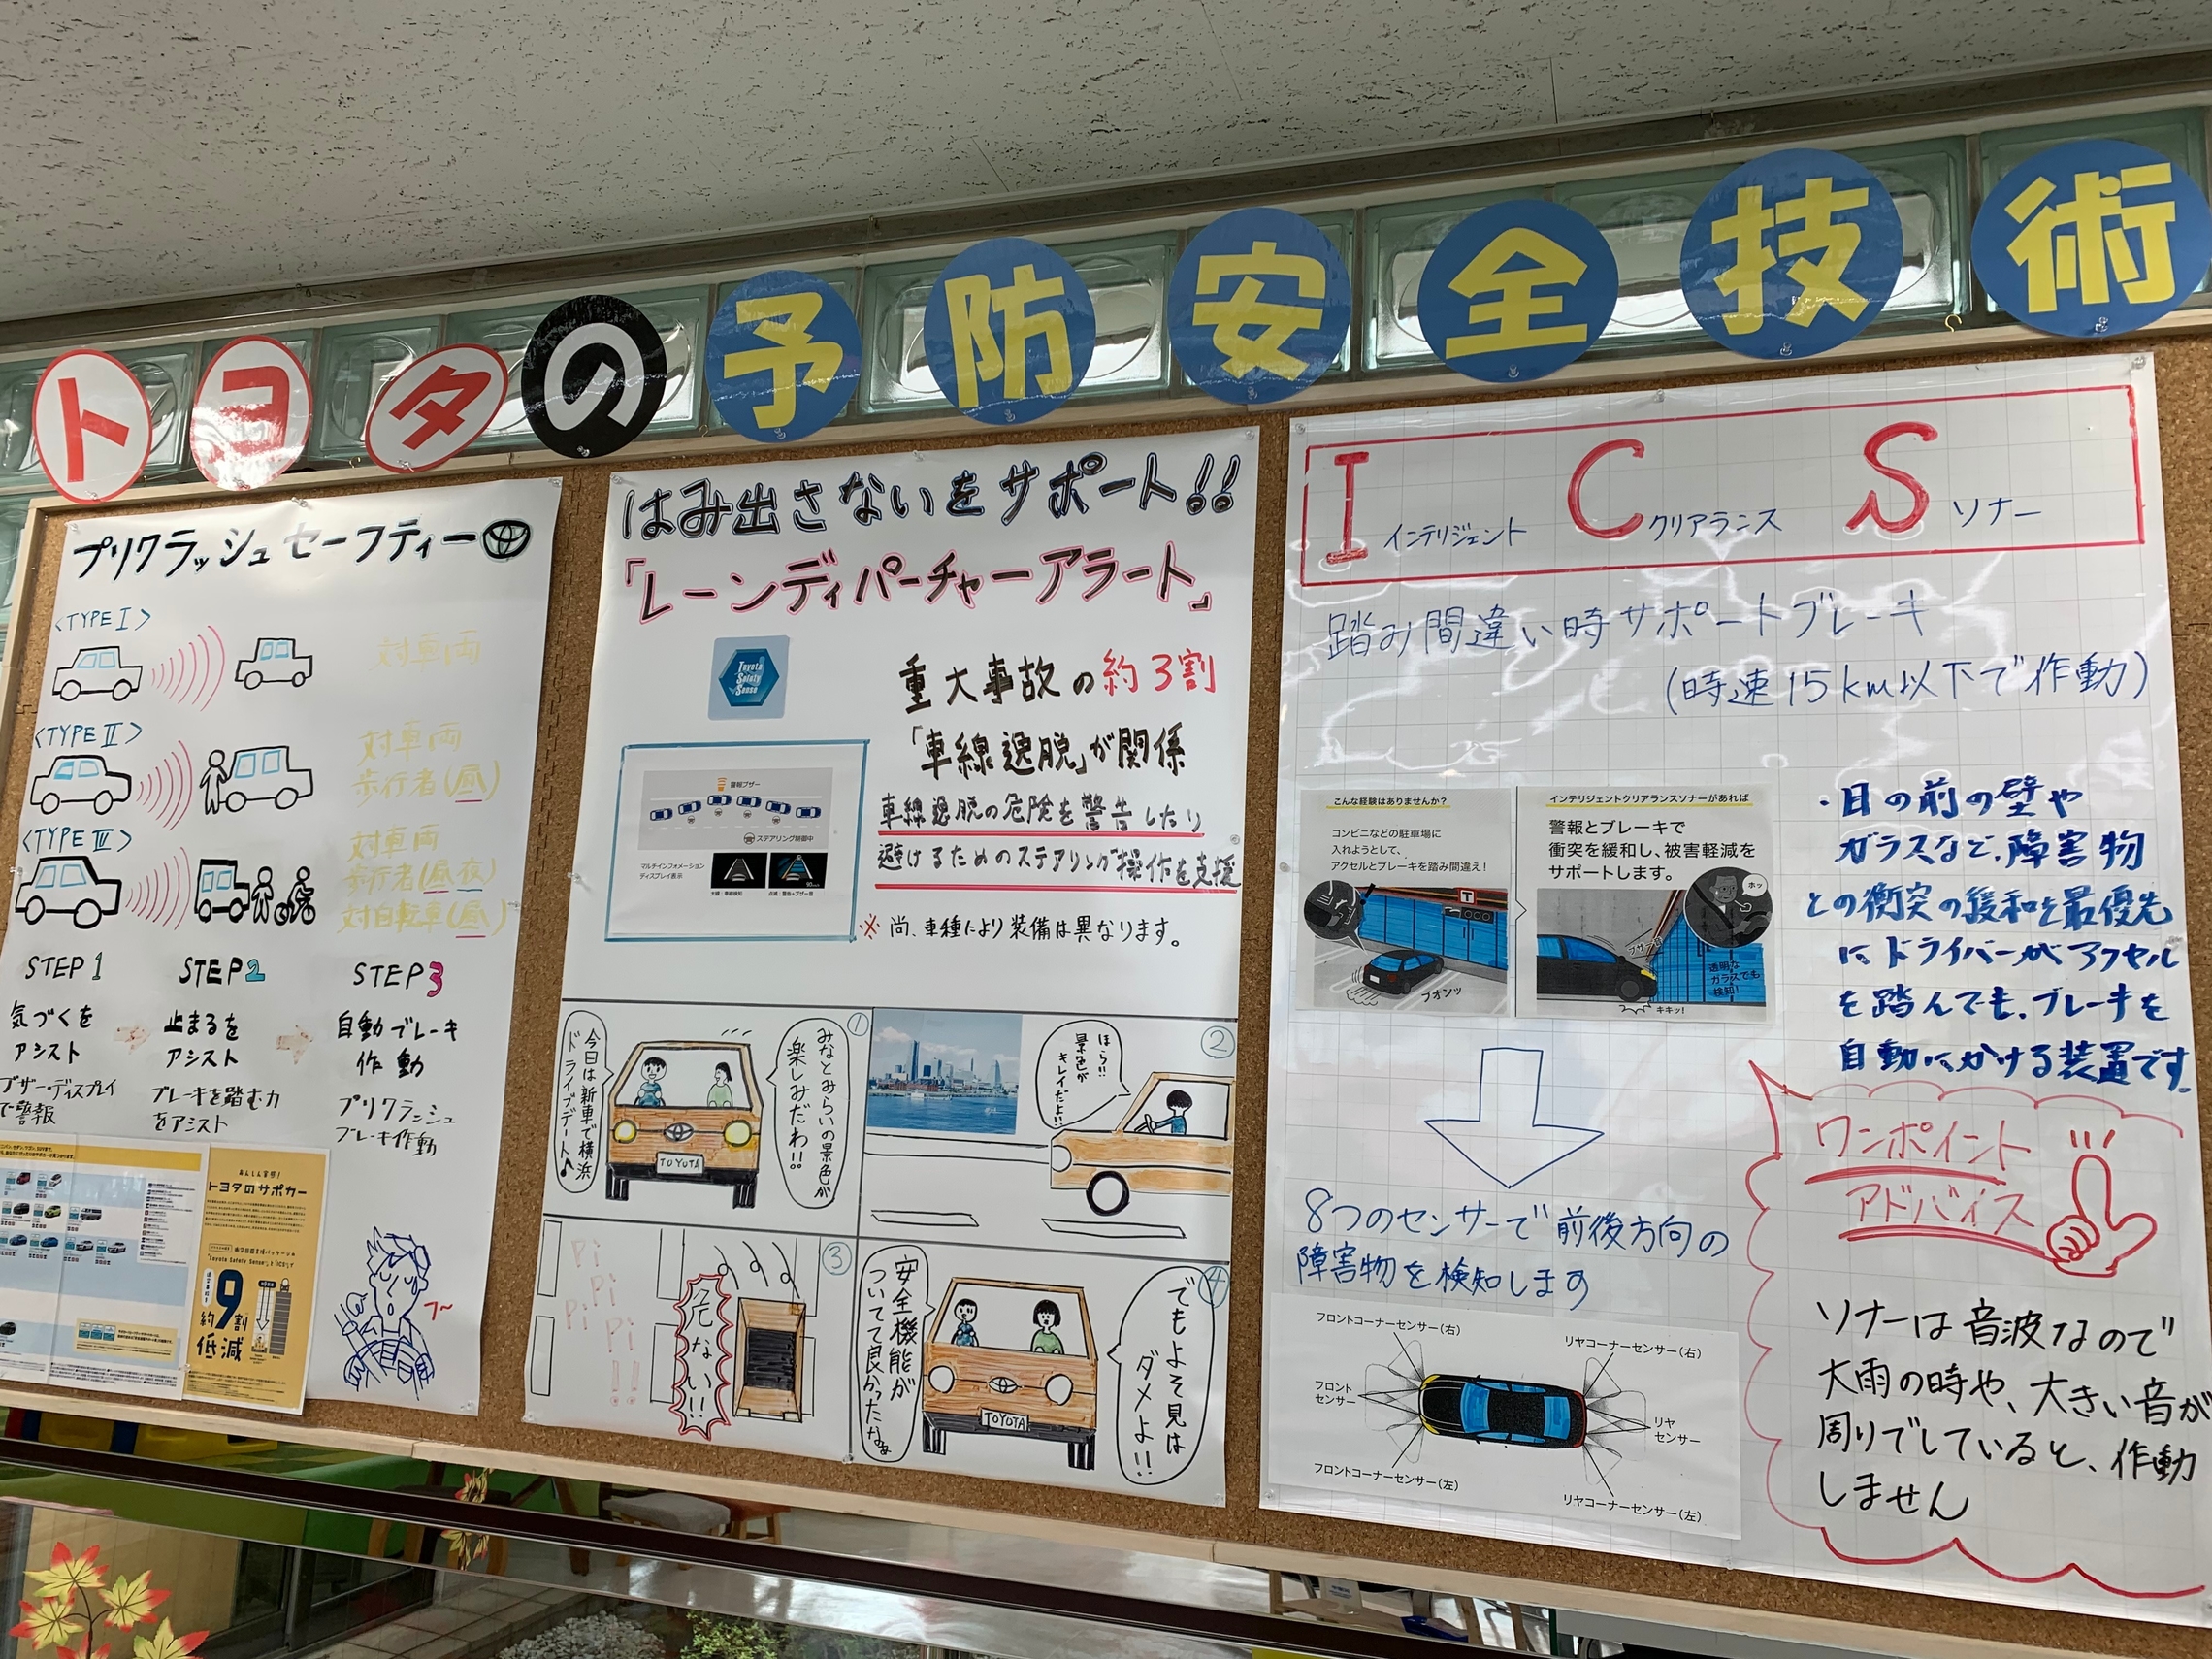 トヨタの予防安全技術
プリクラッシュセーフティー
<TYPE I>
対車両
<TYPE II>
対車両
歩行者(昼)
<TYPE III>
対車両
歩行者(昼夜)
対自転車(昼)
STEP 1
気づくを
アシスト
ブザー・ディスプレイ
で警報
STEP 2
止まるを
アシスト
ブレーキを踏む力
をアシスト
STEP 3
自動ブレーキ
作動
プリクラッシュ
ブレーキ作動
あんしん実感!
トヨタのサポカー
約9割
低減
フ〜
はみ出さないをサポート!!
「レーンディパーチャーアラート」
Toyota
Safety
Sense
重大事故の約3割
「車線逸脱」が関係
車線逸脱の危険を警告したり
避けるためのステアリング操作を支援
※尚、車種により装備は異なります。
警報ブザー
ステアリング制御中
マルチインフォメーション
ディスプレイ表示
①
今日は新車で横浜
ドライブデート♪
みなとみらいの景色が
楽しみだわ!!
TOYOTA
②
ほら!!
景色が
キレイだよ!!
③
Pi
Pi
Pi
Pi
Pi
!!
危ない!!
④
安全機能が
ついてて良かったなぁ
でもよそ見は
ダメよ!!
TOYOTA
I インテリジェント C クリアランス S ソナー
踏み間違い時サポートブレーキ
(時速15km以下で作動)
こんな経験はありませんか?
コンビニなどの駐車場に
入れようとして、
アクセルとブレーキを踏み間違え!
T
ブオンッ
インテリジェントクリアランスソナーがあれば
警報とブレーキで
衝突を緩和し、被害軽減を
サポートします。
ホッ
ブザー音
透明な
ガラスでも
検知!
キキッ!
・目の前の壁や
ガラスなど、障害物
との衝突の緩和を最優先
に ドライバーがアクセル
を踏んでも、ブレーキを
自動にかける装置です。
8つのセンサーで前後方向の
障害物を検知します
フロントコーナーセンサー(右)
リヤコーナーセンサー(右)
フロント
センサー
リヤ
センサー
フロントコーナーセンサー(左)
リヤコーナーセンサー(左)
ワンポイント
アドバイス
ソナーは音波なので
大雨の時や、大きい音が
周りでしていると、作動
しません